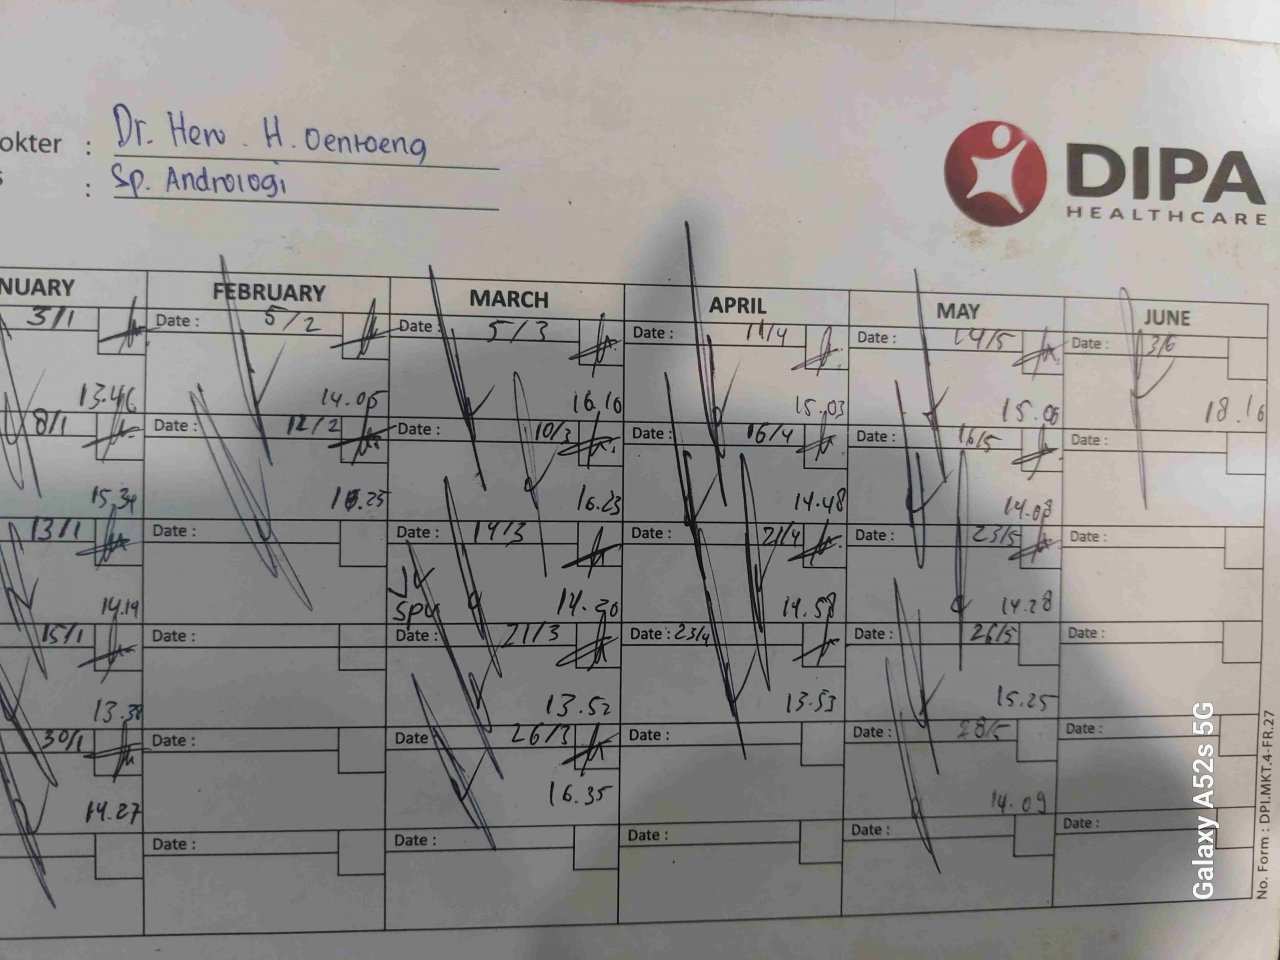 okter : Dr. Heru . H. Oentoeng
s : Sp. Andrologi
DIPA
HEALTHCARE
NUARY FEBRUARY MARCH APRIL MAY JUNE
3/1 Date : 5/2 Date : 5/3 Date : 11/4 Date : 14/5 Date : 3/6
13.46 14.05 16.10 15.03 15.05 18.16
8/1 Date : 12/2 Date : 10/3 Date : 16/4 Date : 16/5 Date :
15.34 .25 16.23 14.48 14.08
13/1 Date : Date : 14/3 Date : 21/4 Date : 23/5 Date :
14.14 Spu 14.30 14.58 14.28
15/1 Date : Date : 21/3 Date : 23/4 Date : 26/5 Date :
13.38 13.52 13.53 15.25
30/1 Date : Date 26/3 Date : Date : 28/5 Date :
14.27 16.35 14.09
Date : Date : Date : Date : Date :
No. Form : DPI.MKT.4-FR.27
Galaxy A52s 5G